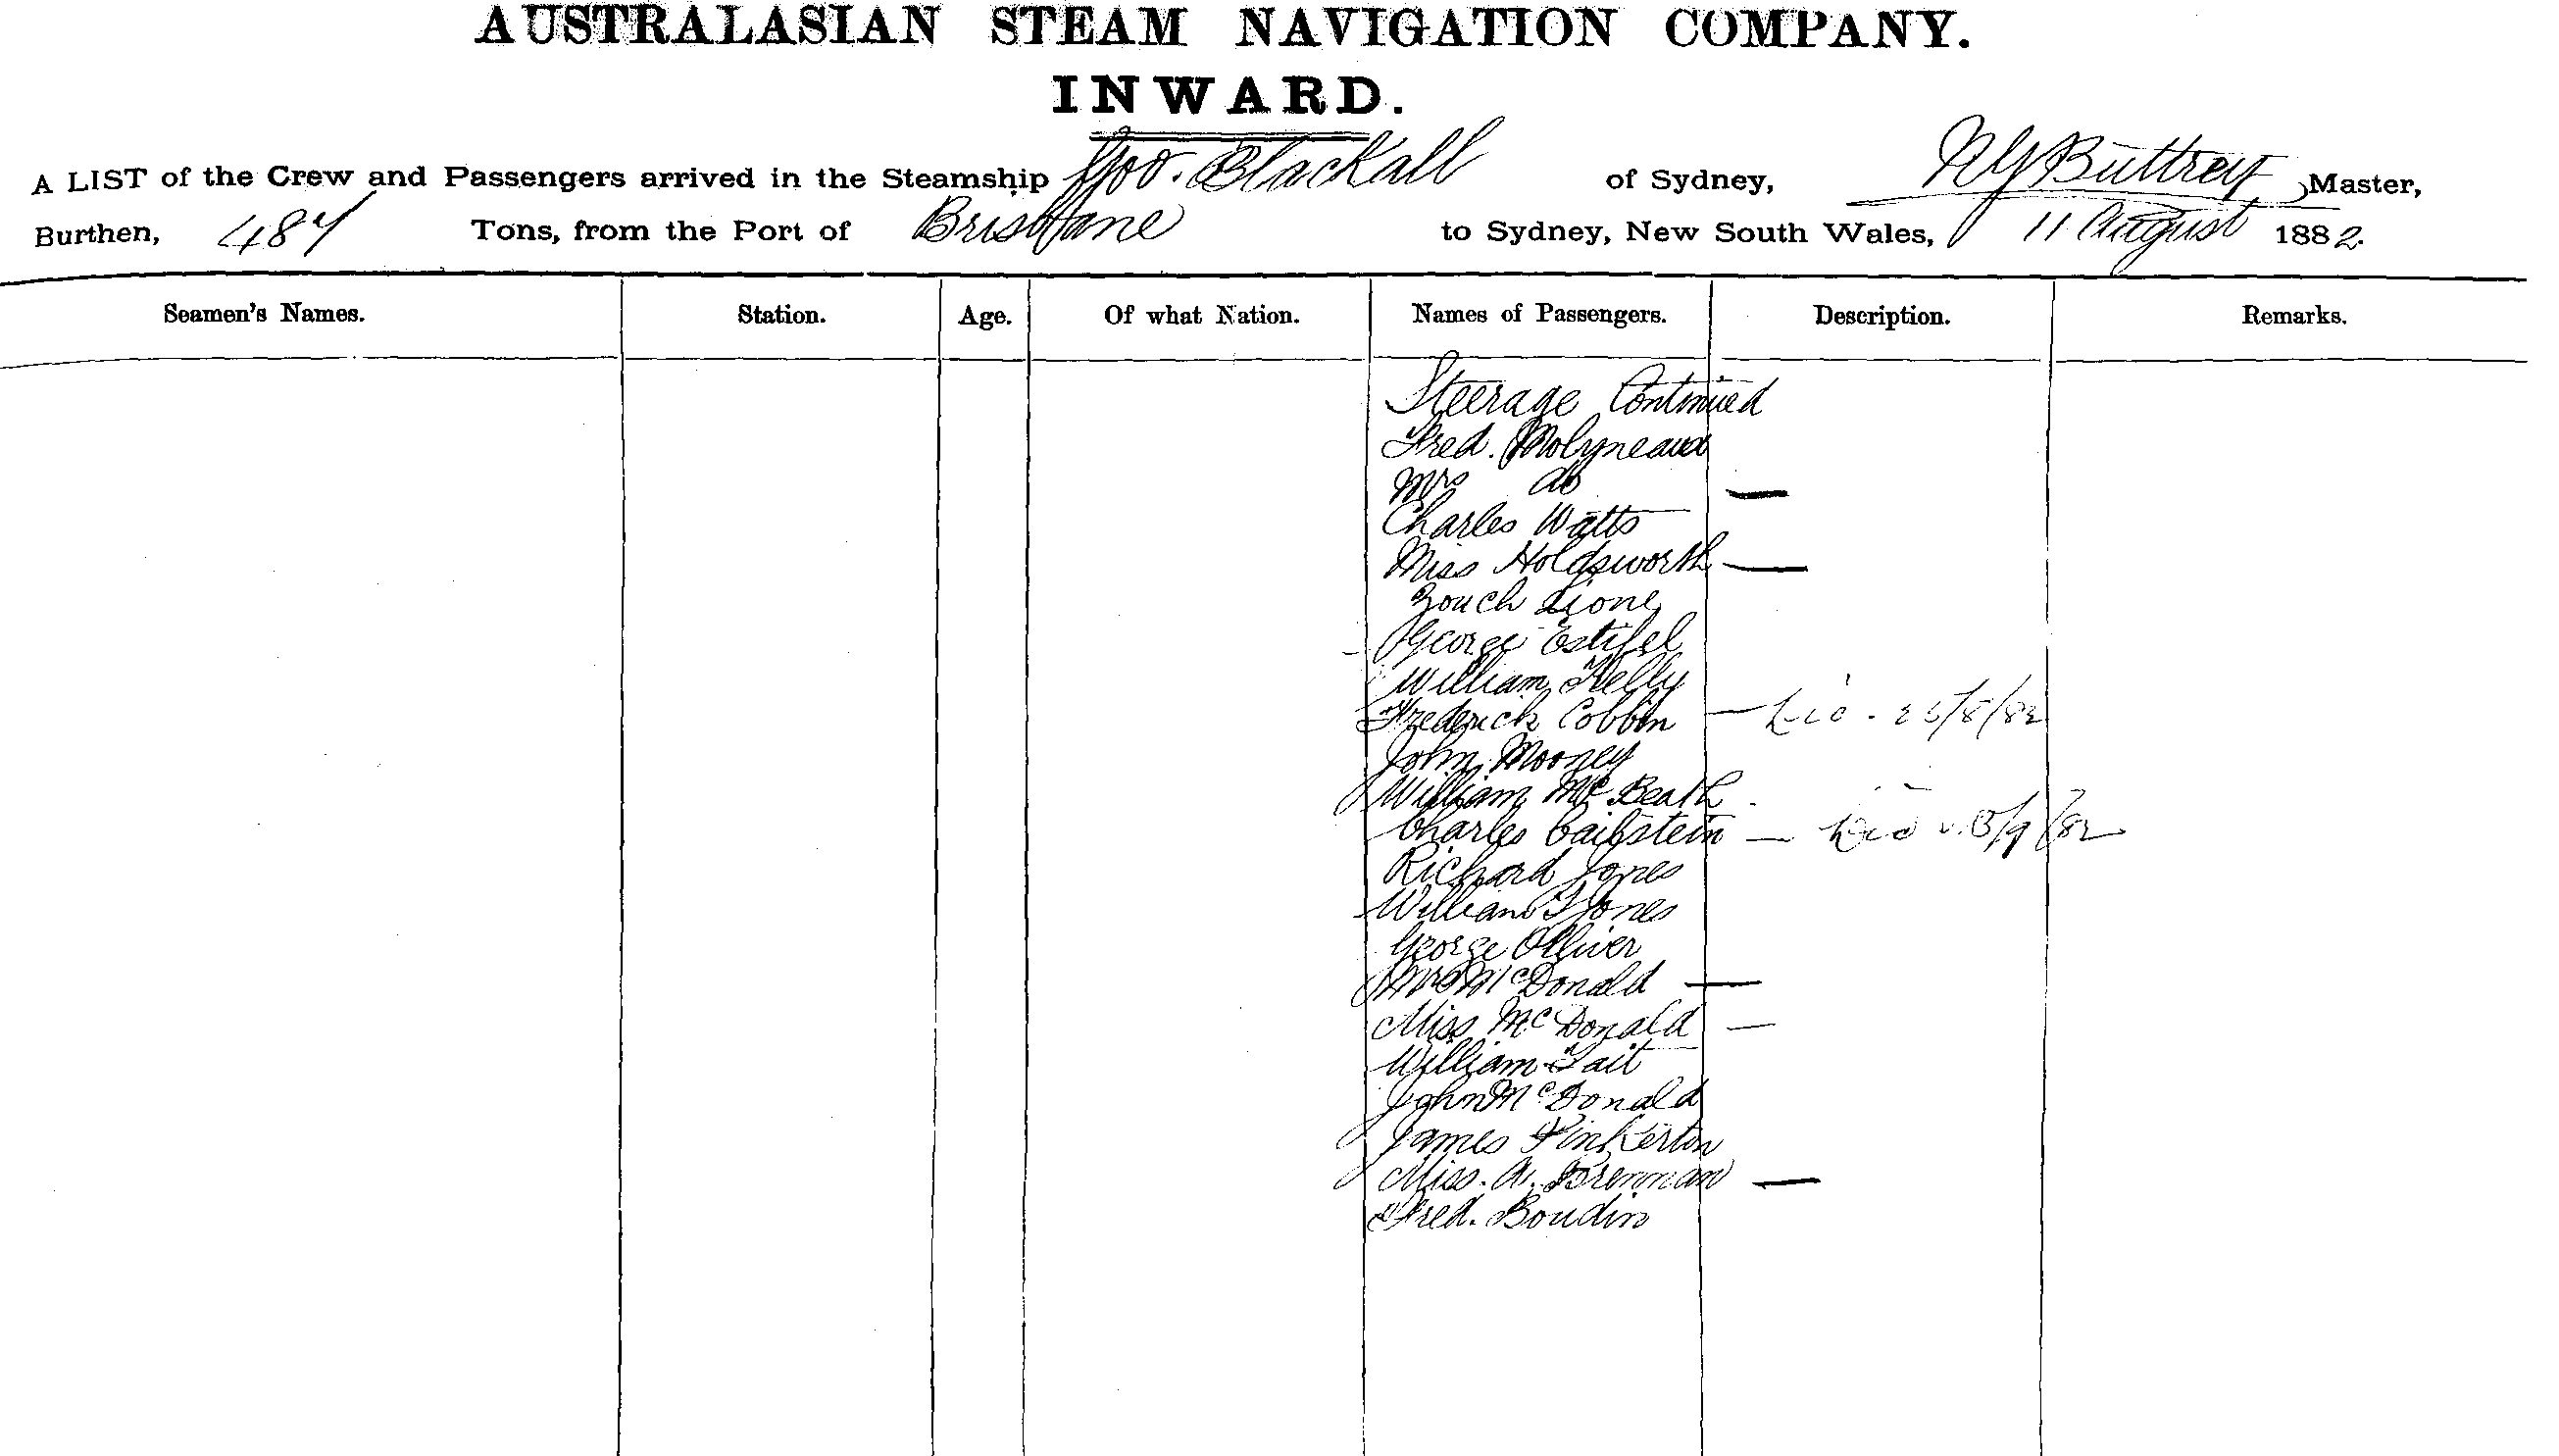 AUSTRALASIAN STEAM NAVIGATION COMPANY.
INWARD.
A LIST of the Crew and Passengers arrived in the Steamship Gov. Blackall of Sydney, Buttrey Master,
Burthen, 487 Tons, from the Port of Brisbane to Sydney, New South Wales, 11 August 1882.
Seamen's Names. Station. Age. Of what Nation. Names of Passengers. Description. Remarks.
Steerage Continued
Fred. Molyneaux
Mrs do —
Charles Watts
Miss Holdsworth —
Zouch
George
William Kelly
Frederick Cobbin —
John Mooney
William McBeath
Charles —
Richard Jones
William Jones
George Olliver
Mrs McDonald —
Miss McDonald —
William Tait
John McDonald
James Pinkerton
Miss. A. Brennan —
Fred. Boudin